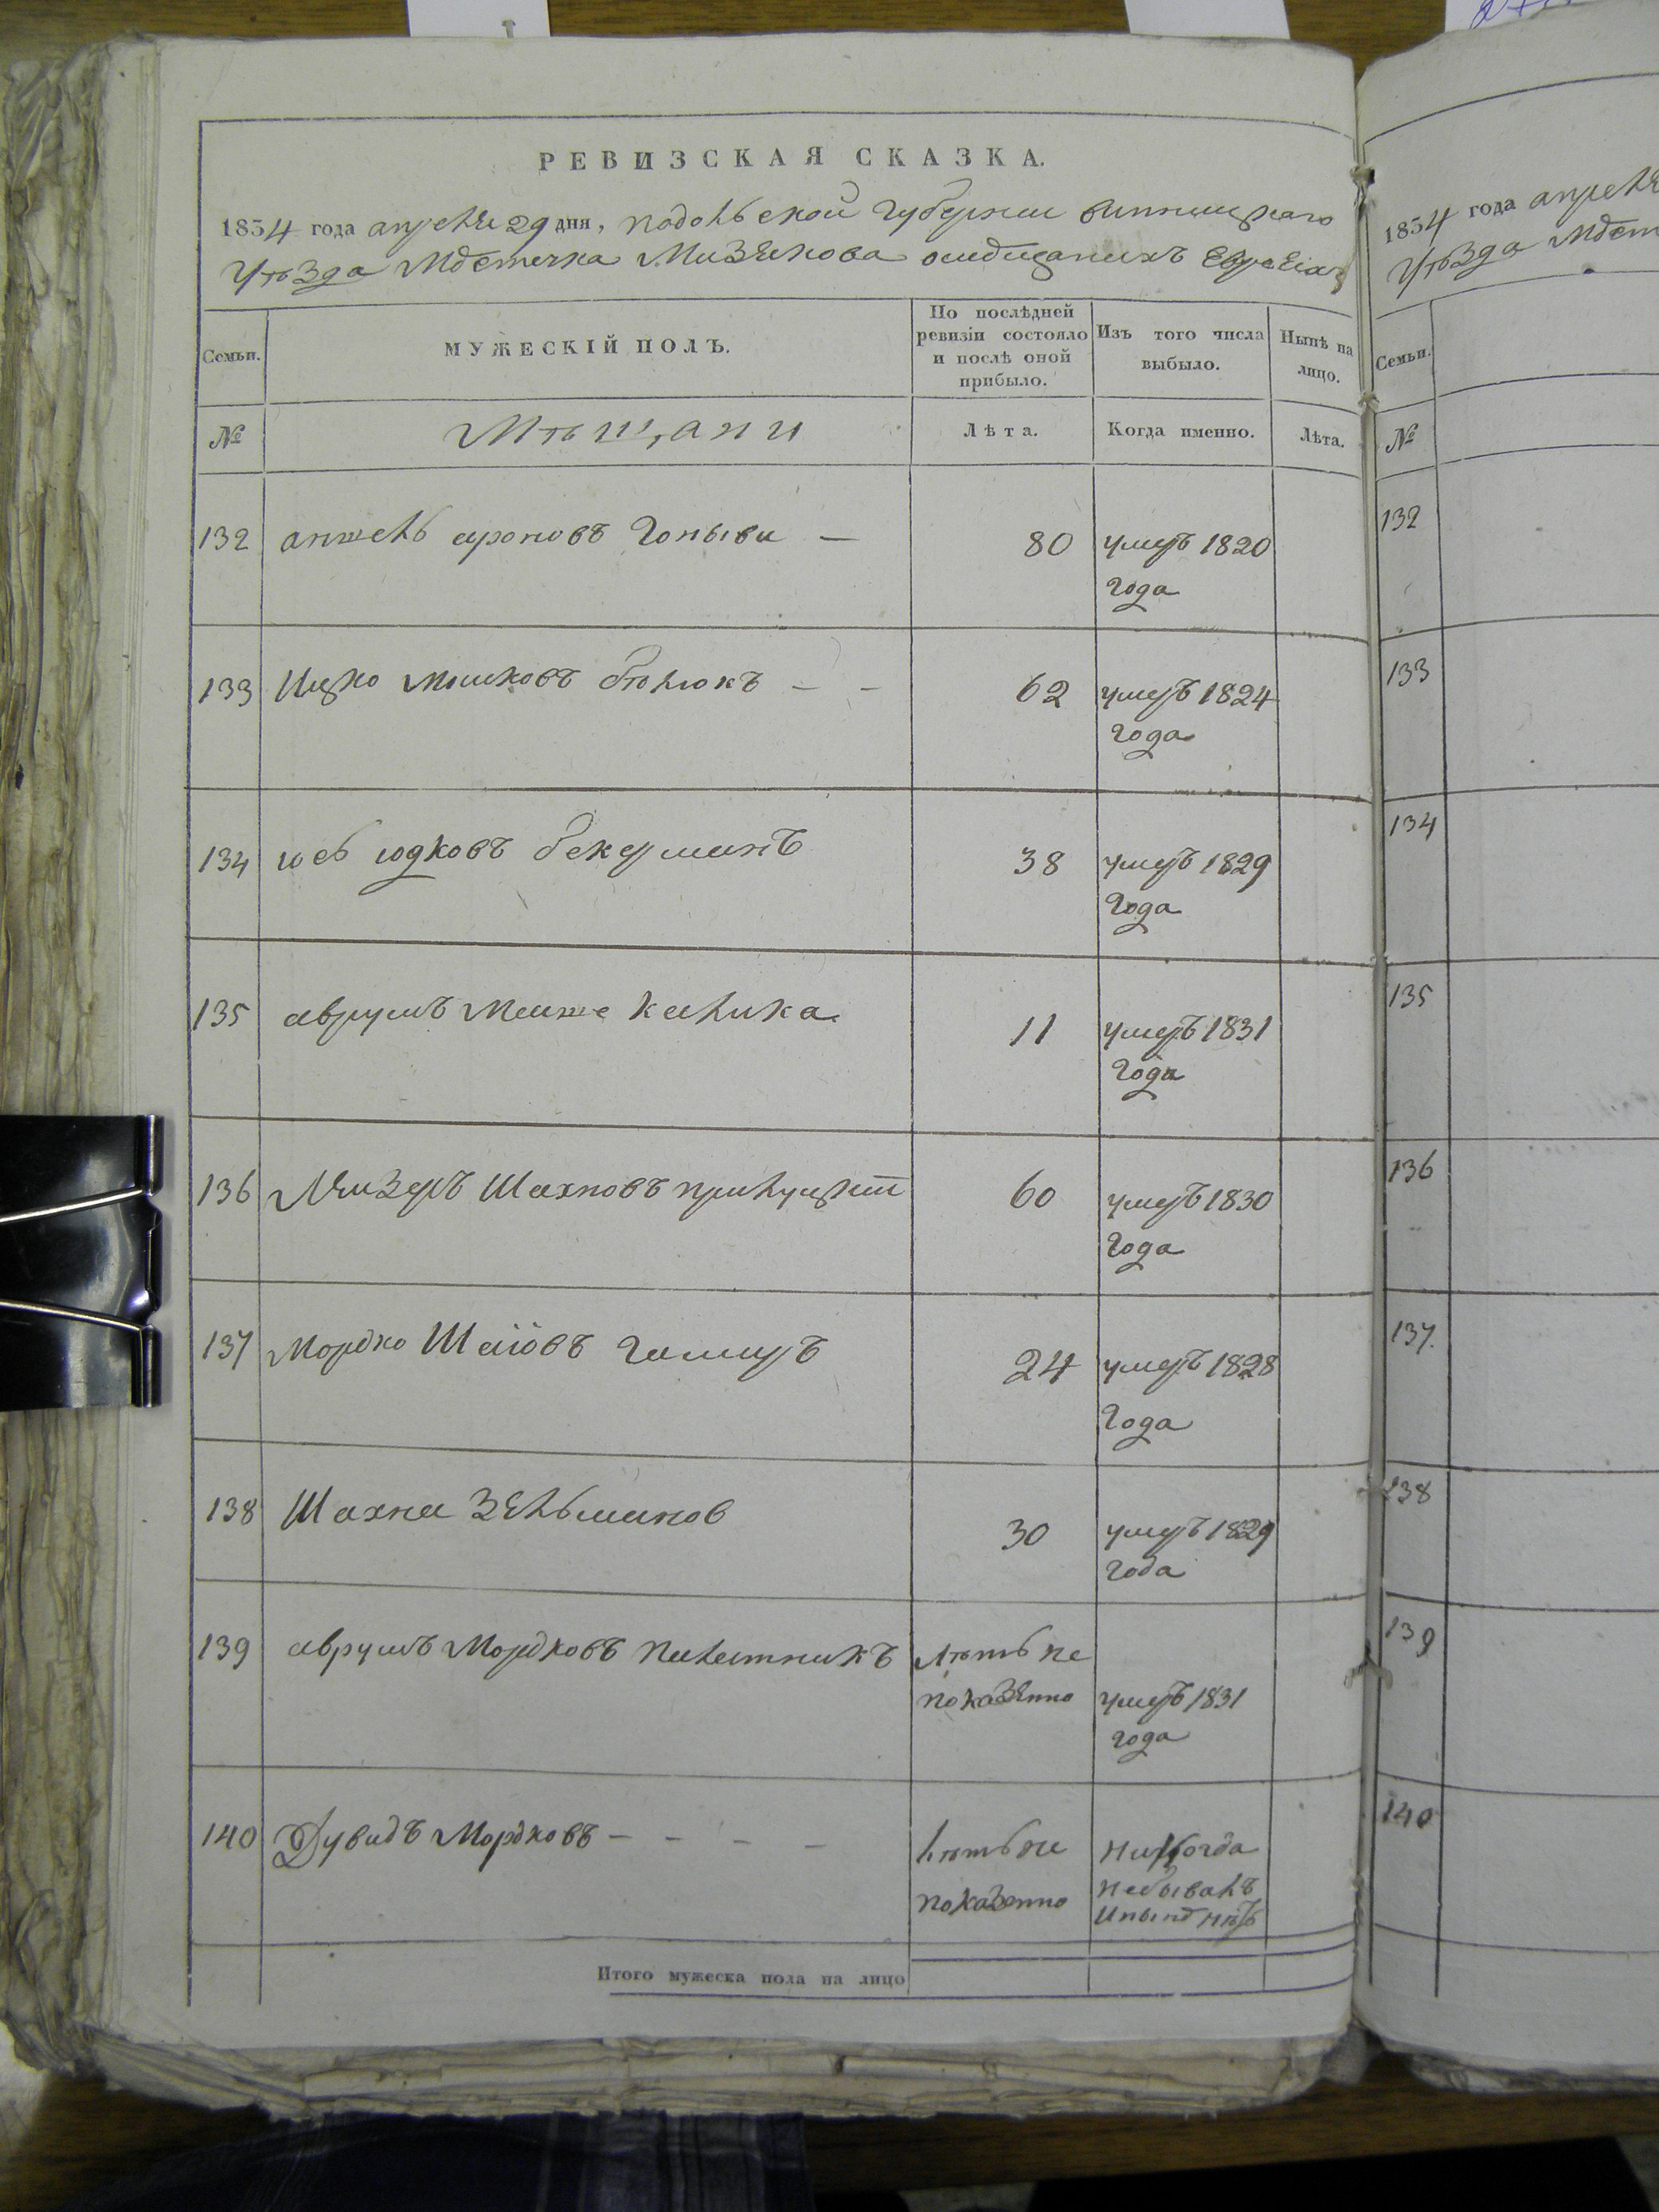 РЕВИЗСКАЯ СКАЗКА.
1834 года апреля 29 дня, подольской губернии винницкаго
уѣзда мѣстечка Мизякова о евреяхъ
Семьи. МУЖЕСКІЙ ПОЛЪ. По послѣдней ревизіи состояло и послѣ оной прибыло. Изъ того числа выбыло. Нынѣ на лицо.
№ Мѣщани Лѣта. Когда именно. Лѣта.
132 аншель ароновъ — 80 умеръ 1820
года
133 Ицко Мошковъ — — 62 умеръ 1824
года
134 юдковъ бекерманъ 38 умеръ 1829
года
135 аврумъ Калика 11 умеръ 1831
года
136 Лейзеръ Шахновъ 60 умеръ 1830
года
137 Мордко 24 умеръ 1828
года
138 Шахна Зельманов 30 умеръ 1829
года
139 аврумъ Мордковъ Лѣтъ не
показанно умеръ 1831
года
140 Дувидъ Мордковъ — — — — Лѣтъ не никогда
показанно небывалъ
и нынѣ нѣтъ
Итого мужеска пола на лицо
1834 года апреля
уѣзда мѣст
Семьи.
№
132
133
134
135
136
137.
138
139
140